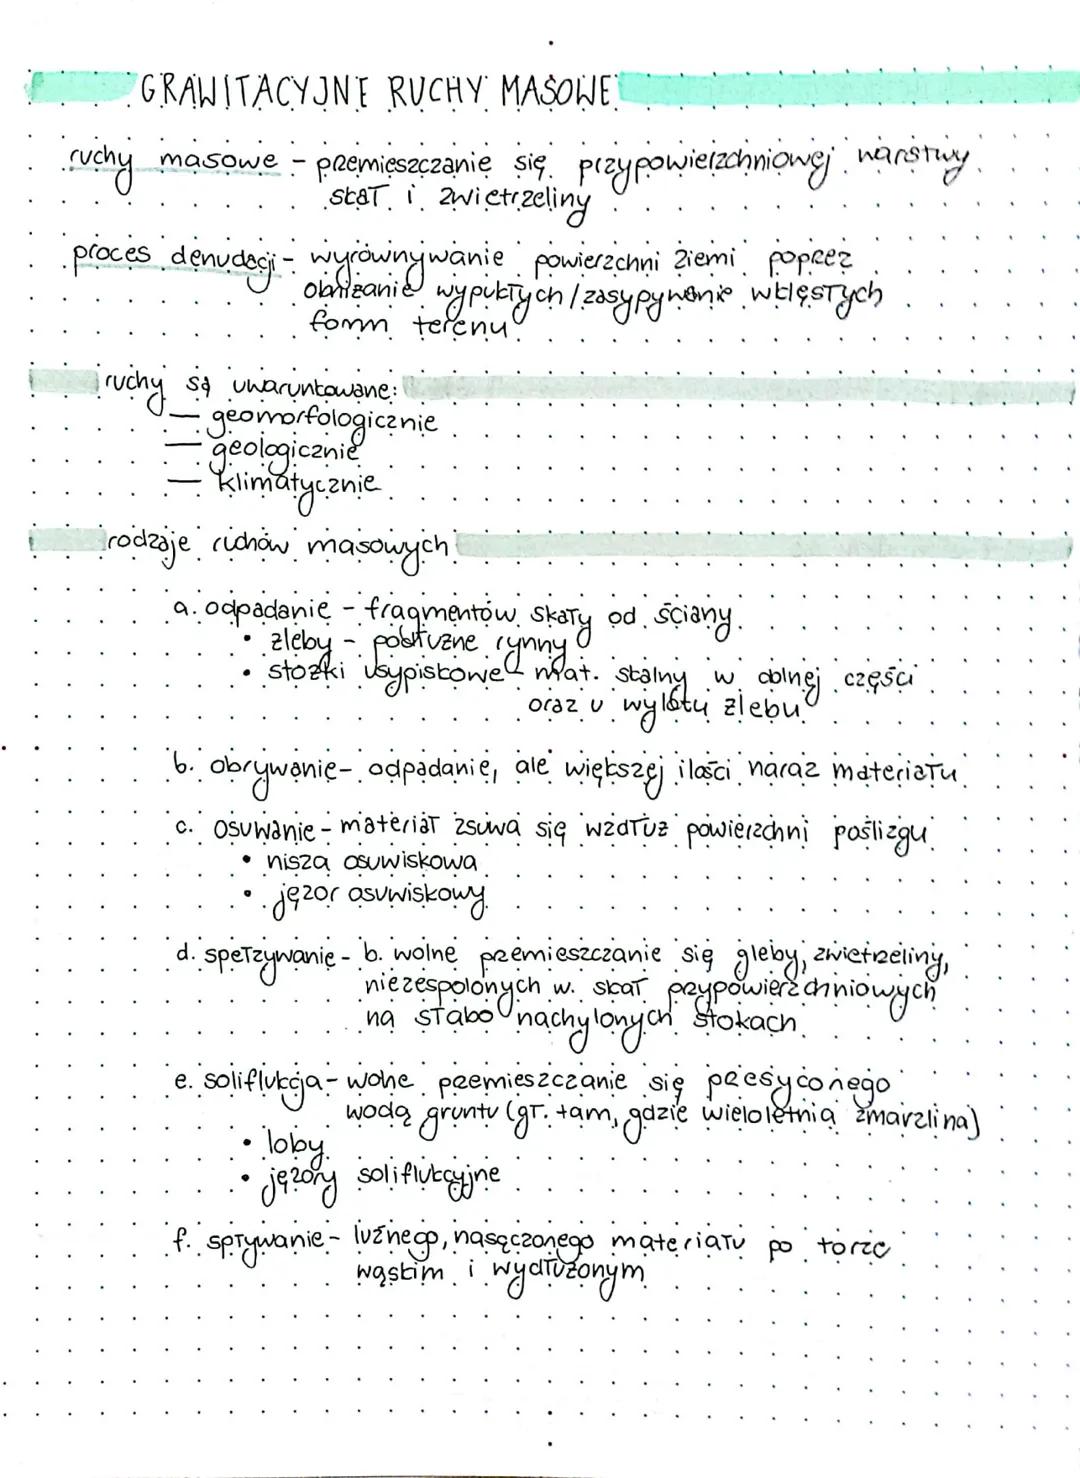 GRAWITACYJNE RUCHY MASOWE
ruchy masowe - przemieszczanie się przypowierzchniowej warstwy
skał i zwietrzeliny
proces denudacji - wyrównywanie powierzchni Ziemi poprzez
obniżanie wypukłych / zasypywanie wklęsłych
form terenu
ruchy są uwarunkowane:
— geomorfologicznie
— geologicznie
— klimatycznie
rodzaje ruchów masowych
a. odpadanie - fragmentów skały od ściany
• żleby - podłużne rynny
• stożki usypiskowe - mat. skalny w dolnej części
oraz u wylotu żlebu
b. obrywanie - odpadanie, ale większej ilości naraz materiału
c. osuwanie - materiał zsuwa się wzdłuż powierzchni poślizgu
• nisza osuwiskowa
• jęzor osuwiskowy
d. spełzywanie - b. wolne przemieszczanie się gleby, zwietrzeliny,
niezespolonych w. skał przypowierzchniowych
na słabo nachylonych stokach
e. soliflukcja - wolne przemieszczanie się przesyconego
wodą gruntu (gł. tam, gdzie wieloletnia zmarzlina)
• loby
• jęzory soliflukcyjne
f. spływanie - luźnego, nasączonego materiału po torze
wąskim i wydłużonym